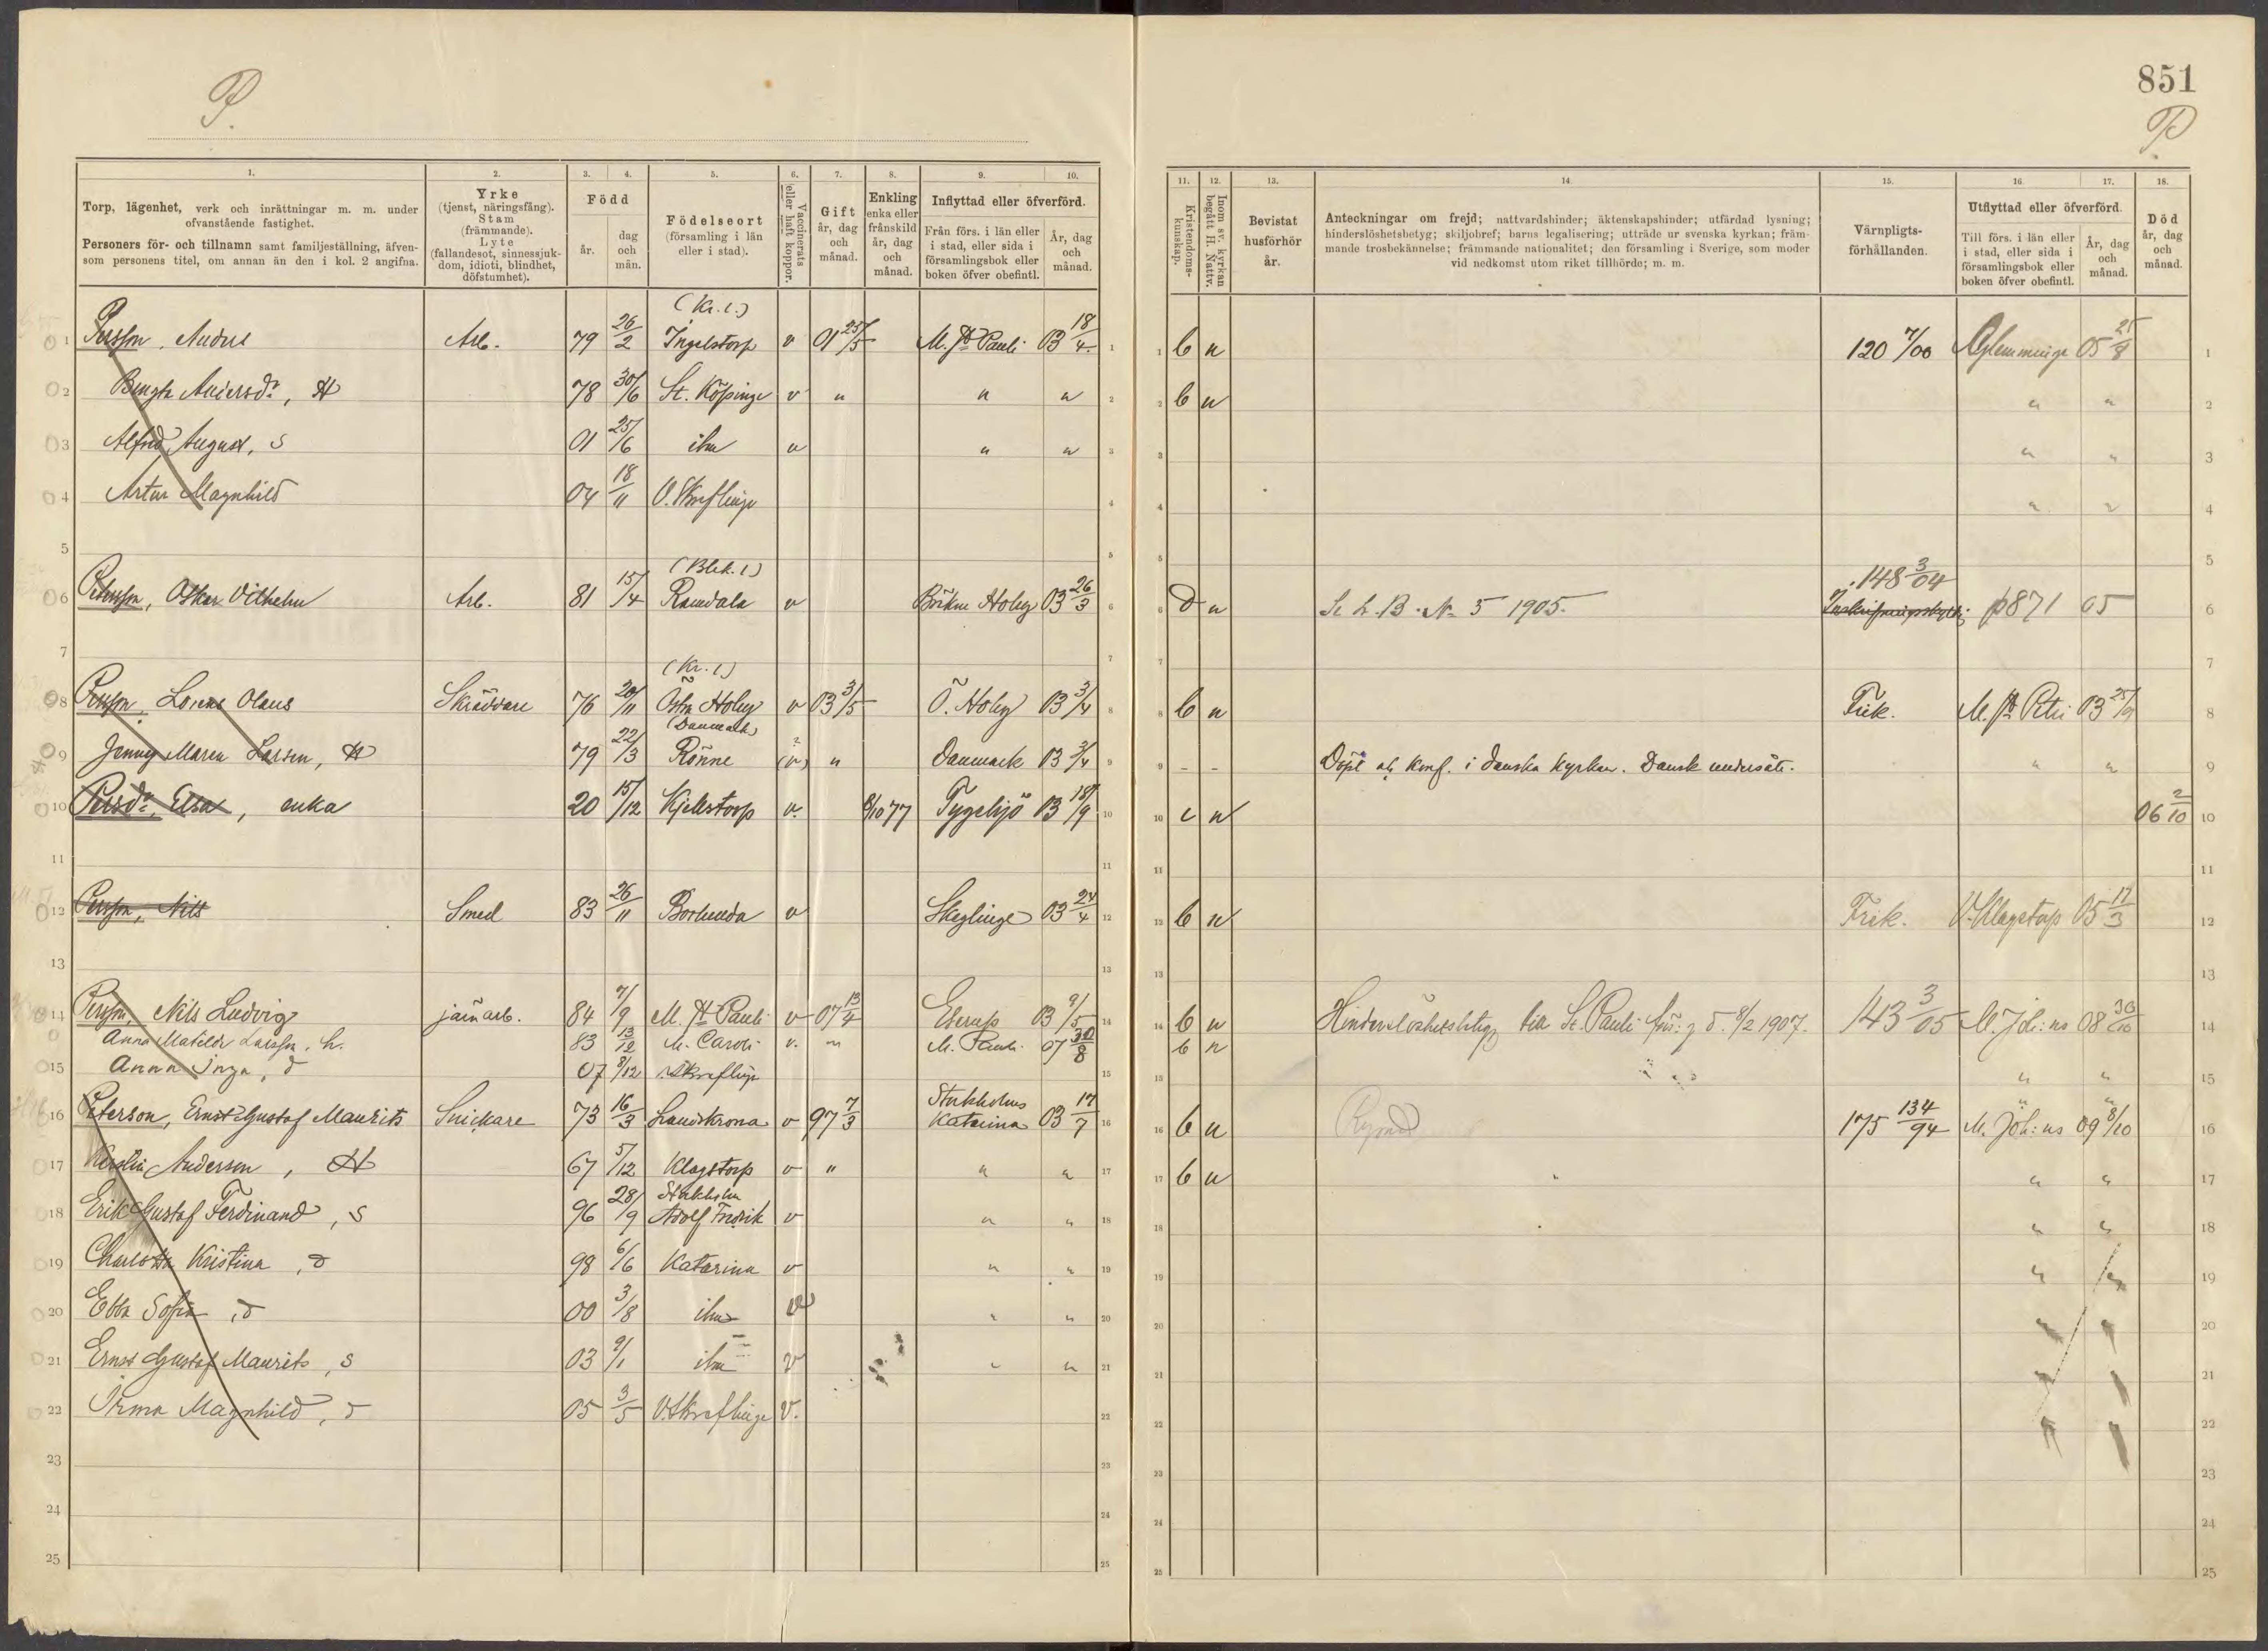 P.
851
P
1. 2. 3. 4. 5. 6. 7. 8. 9. 10.
Torp, lägenhet, verk och inrättningar m. m. under ofvanstående fastighet.
Personers för- och tillnamn samt familjeställning, äfven-
som personens titel, om annan än den i kol. 2 angifna.
Yrke
(tjenst, näringsfång).
Stam
(främmande).
Lyte
(fallandesot, sinnessjuk-
dom, idioti, blindhet,
döfstumhet).
Född
år.
dag
och
mån.
Födelseort
(församling i län
eller i stad).
Vaccinerats
eller haft koppor.
Gift
år, dag
och
månad.
Enkling
enka eller
frånskild
år, dag
och
månad.
Inflyttad eller öfverförd.
Från förs. i län eller
i stad, eller sida i
församlingsbok eller
boken öfver obefintl.
År, dag
och
månad.
11. 12. 13. 14. 15. 16. 17. 18.
Kristendoms-
kunskap.
Inom sv. kyrkan
begått H. Nattv.
Bevistat
husförhör
år.
Anteckningar om frejd; nattvardshinder; äktenskapshinder; utfärdad lysning;
hinderslöshetsbetyg; skiljobref; barns legalisering; utträde ur svenska kyrkan; främ-
mande trosbekännelse; främmande nationalitet; den församling i Sverige, som moder
vid nedkomst utom riket tillhörde; m. m.
Värnpligts-
förhållanden.
Utflyttad eller öfverförd.
Till förs. i län eller
i stad, eller sida i
församlingsbok eller
boken öfver obefintl.
År, dag
och
månad.
Död
år, dag
och
månad.
(Kr. l.)
1 Persson, Anders Arb. 79 26/2 Ingelstorp v 01 25/5 M. St Pauli 03 18/4 1 b n 120 7/00 Glemminge 05 25/8 1
2 Bengta Andersdr, H 78 30/6 St. Köpinge v " " " 2 b n " " 2
3 Alfred August, S 01 25/6 ibm v " " 3 " " 3
4 Artur Magnhild 04 18/11 V. Skreflinge 4 " " 4
5
(Blek. l)
6 Petersson, Oskar Vilhelm Arb. 81 15/4 Ramdala v Bräkne Hoby 03 26/3 6 D n Se L.B. No 5 1905. 148 3/04 p 871 05 6
7
(Kr. l)
8 Persson, Lorens Olaus Skräddare 76 20/11 Östra Hoby v 03 3/5 Ö. Hoby 03 3/4 8 b n Frik. M. St Petri 03 25/9 8
(Danmark)
9 Jenny Maren Larsen, H 79 22/3 Rönne (v) " Danmark 03 3/4 9 - - Döpt och konf. i danska kyrkan. Dansk undersåte. " " 9
10 Persdr, Elsa, enka 20 15/12 Kjellstorp v. 8/10 77 Tygelsjö 03 18/9 10 c n 06 2/10 10
11
12 Persson, Nils Smed 83 26/11 Borlunda v Skeglinge 03 24/4 12 b n Frik. V. Klagstorp 05 17/3 12
13
14 Persson, Nils Ludvig järnarb. 84 7/9 M. St Pauli v 07 13/4 Eserup 03 9/5 14 b n Hinderslöshetsbetyg till St. Pauli förs:g d. 8/2 1907. 143 3/05 M. Joh:ns 08 30/10 14
Anna Matilda Larsson, h. 83 13/12 M. Caroli v. " M. Pauli 07 30/8 b n
15 Anna Inga, d 07 8/12 V. Skreflinge 15 " " 15
Stockholms
16 Peterson, Ernst Gustaf Maurits Snickare 73 16/3 Landskrona v 97 7/3 Katarina 03 17/7 16 b n 175 134/94 M. Joh:ns 09 8/10
17 Kerstin Anderson, H 67 5/12 Klagstorp v " " " 17 b n " " 17
Stockholm
18 Erik Gustaf Ferdinand, S 96 28/9 Adolf Fredrik v " " 18 " " 18
19 Charlotta Kristina, d 98 6/6 Katarina v " " 19 " " 19
20 Ebba Sofia, d 00 3/8 ibm v " " 20 " " 20
21 Ernst Gustaf Maurits, S 03 9/1 ibm v " " 21 " " 21
22 Irma Magnhild, d 05 3/5 V. Skreflinge v. 22 " " 22
23
24
25